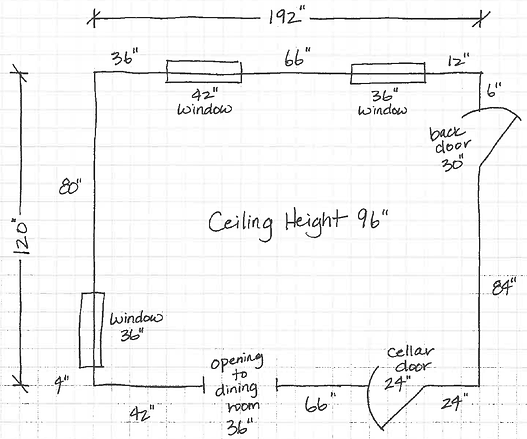 192"
36"
66"
12"
42"
window
36"
window
6"
back
door
30"
80"
120"
Ceiling Height 96"
84"
window
36"
4"
opening
to
dining
room
36"
cellar
door
24"
42"
66"
24"